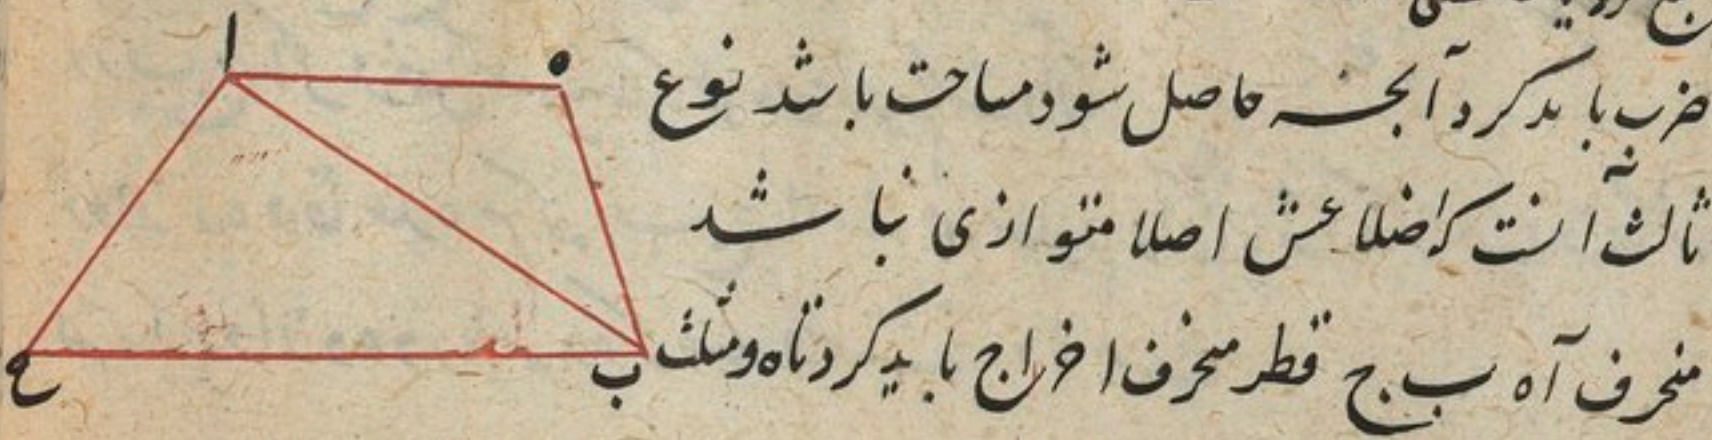 ضرب باید کرد آنچه حاصل شود مساحت باشد نوع
ثالث آنست که اضلاعش اصلا متوازی نباشد
منحرف آه ب ج قطر منحرف اخراج باید کرد تا ه و مثلث
ا
ه
ب
ج